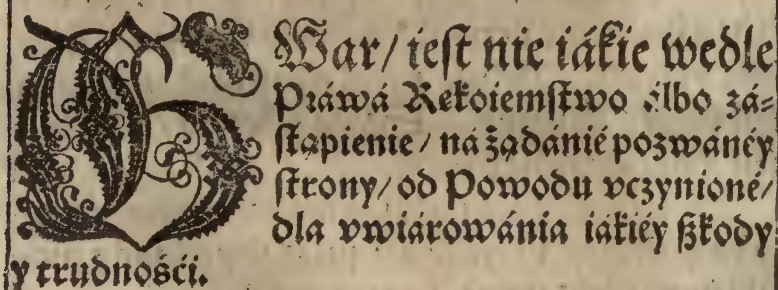 GWar/ iest nie iákie wedle
Práwá Rekoiemstwo álbo zá=
stąpienie/ ná żądánié pozwánéy
strony/ od Powodu vczynioné/
dla vwiárowánia iákiéy szkody
y trudnośći.